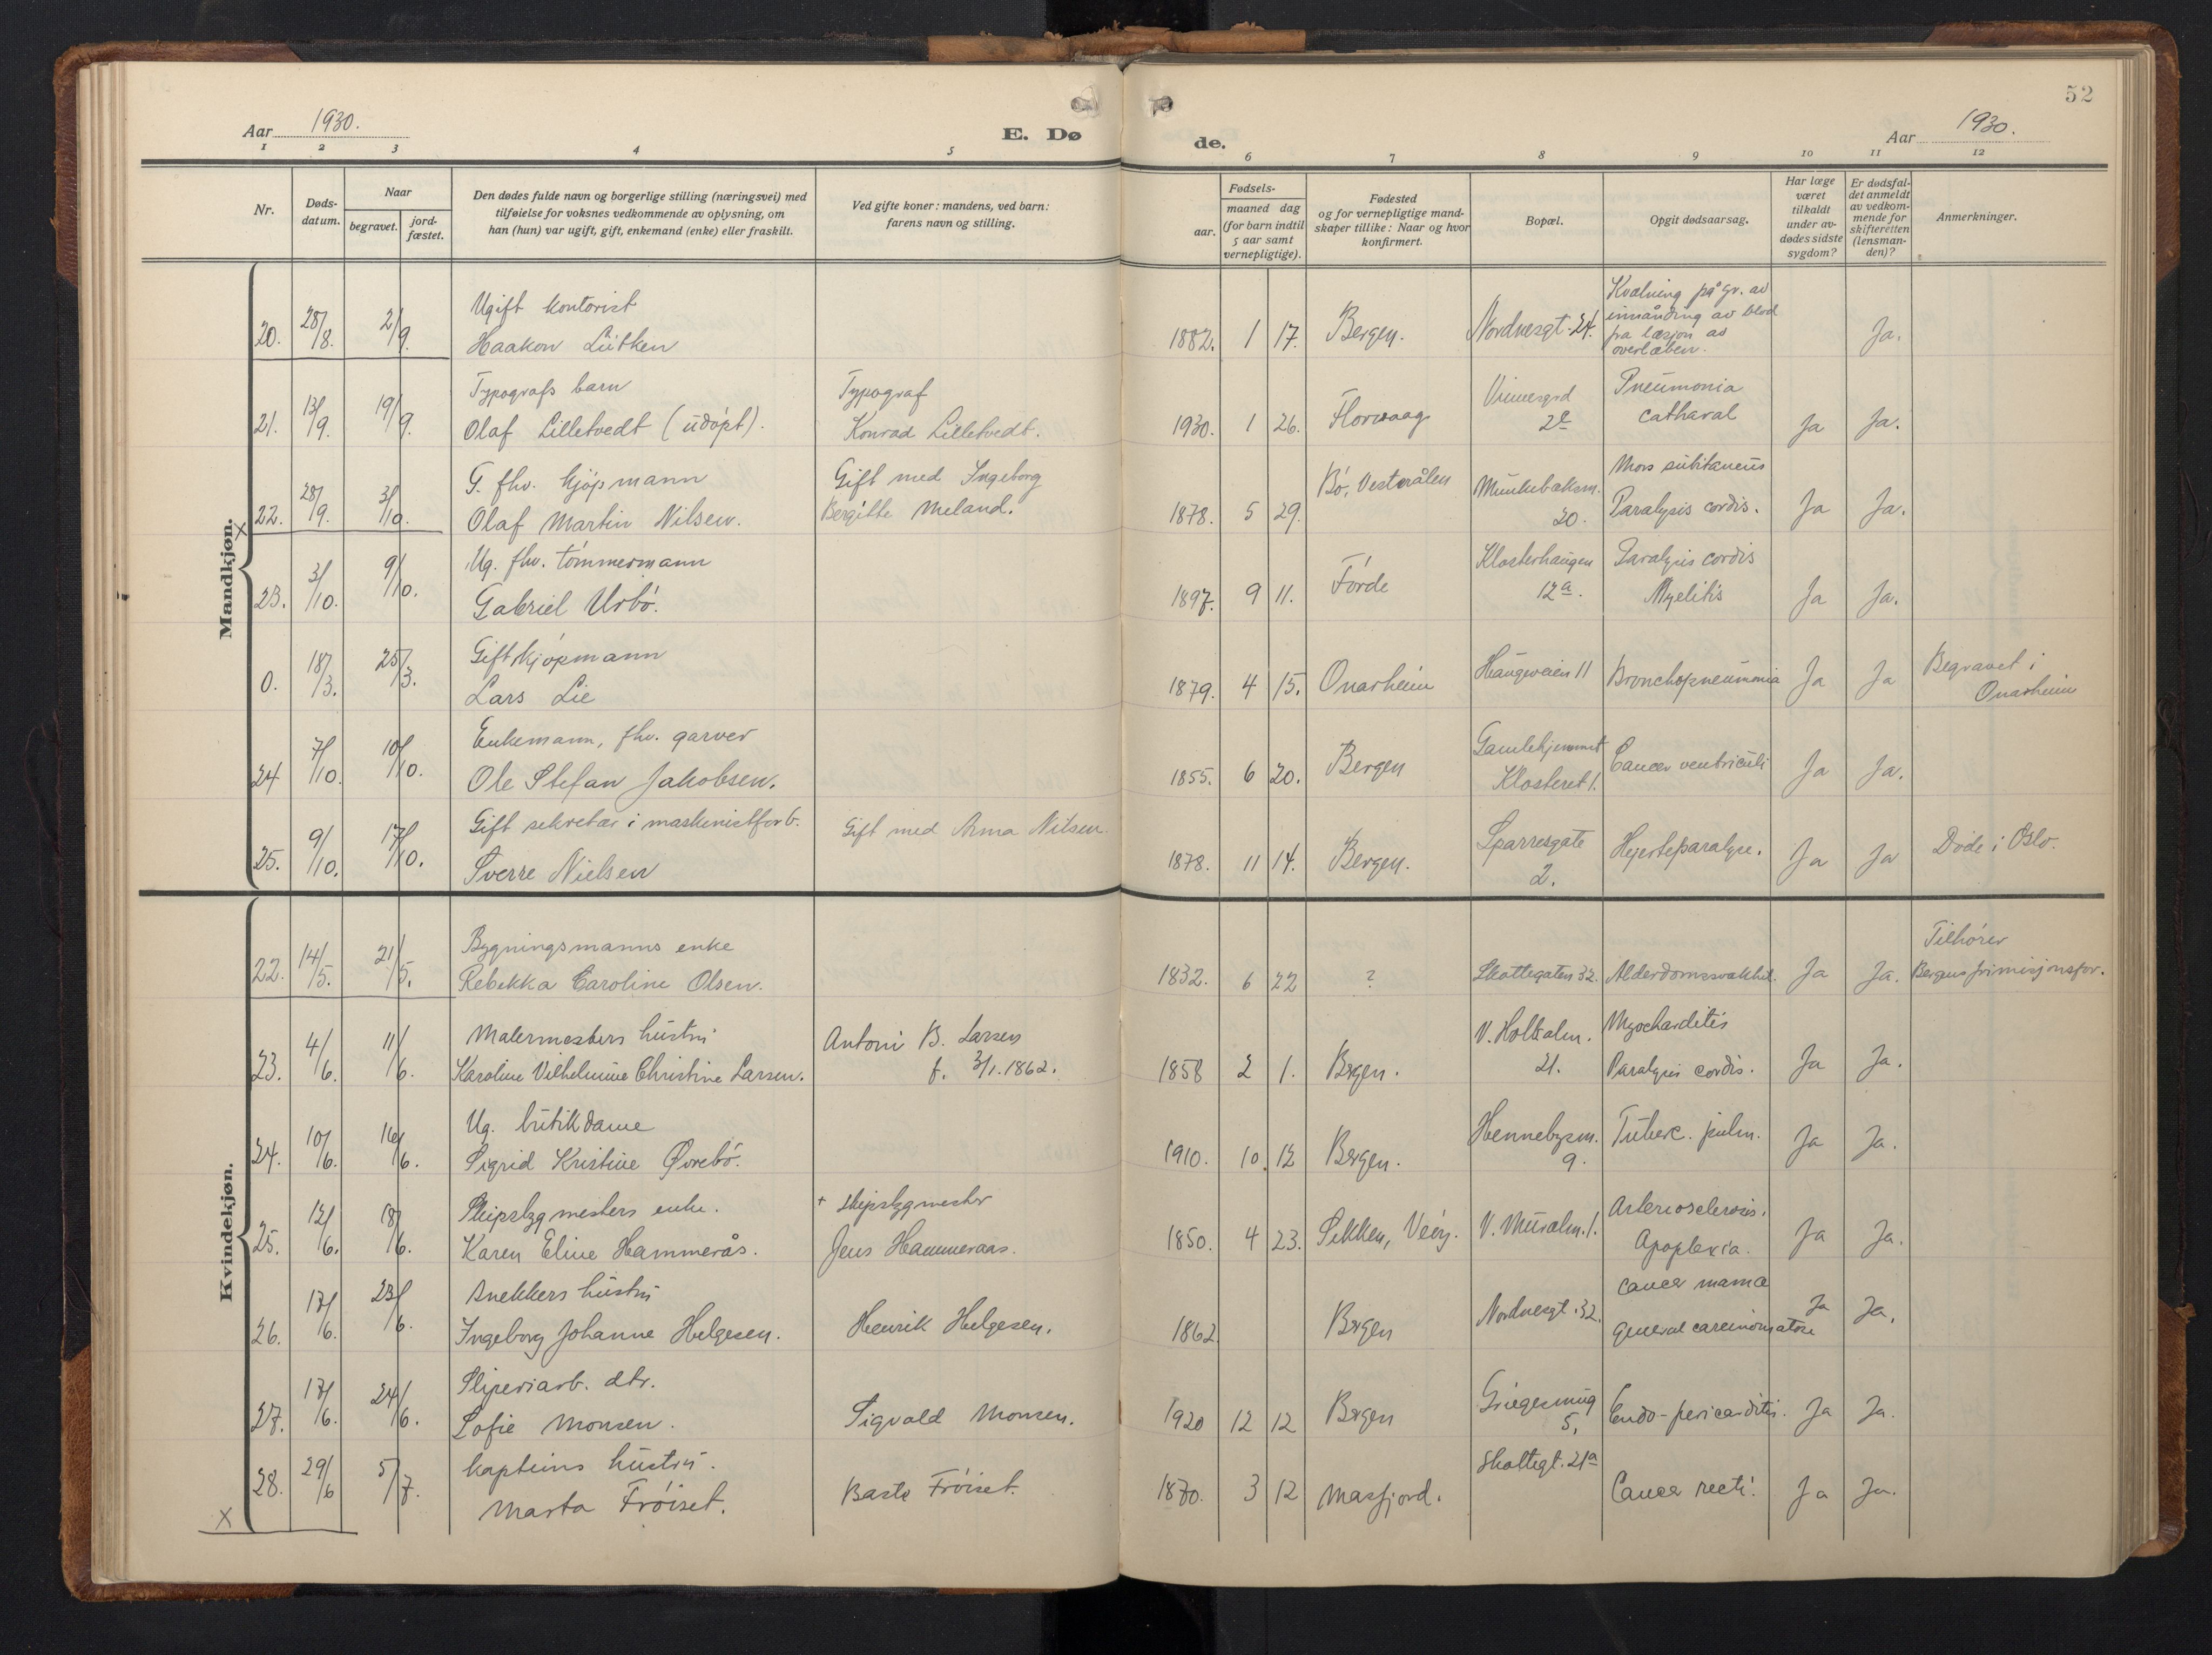 52
Aar 1930.
E. Dø
de.
Aar 1930.
1 2 3 4 5 6 7 8 9 10 11 12
Nr.
Døds-
datum.
Naar
begravet.
jord-
fæstet.
Den dødes fulde navn og borgerlige stilling (næringsvei) med
tilføielse for voksnes vedkommende av oplysning, om
han (hun) var ugift, gift, enkemand (enke) eller fraskilt.
Ved gifte koner: mandens, ved barn:
farens navn og stilling.
Fødsels-
aar.
maaned dag
(for barn indtil
5 aar samt
vernepligtige).
Fødested
og for vernepligtige mand-
skaper tillike: Naar og hvor
konfirmert.
Bopæl.
Opgit dødsaarsag.
Har læge
været
tilkaldt
under av-
dødes sidste
sygdom?
Er dødsfal-
det anmeldt
av vedkom-
mende for
skifteretten
(lensman-
den)?
Anmerkninger.
Mandkjøn.
20. 28/8. 2/9. Ugift kontorist
Haakon Lütken
1882. 1 17. Bergen. Nordnesgt. 24.
Kvælning på gr. av
innånding av blod
fra læsjon av
overlæben.
Ja.
21. 13/9. 19/9. Typografs barn
Olaf Lilletvedt (udöpt).
Typograf
Konrad Lilletvedt.
1930. 1 26. Florvaag
2e
Pneumonia
catharal
Ja Ja.
x 22. 28/9. 3/10. G. fhv. kjöpmann
Olaf Martin Nilsen.
Gift med Ingeborg
Bergitte Meland.
1878. 5 29. Bö, Vesterålen
Munkebæksm.
20.
Mors subitaneus
Paralysis cordis.
Ja Ja.
23. 3/10. 9/10. Ug. fhv. tömmermann
Gabriel Urbö.
1897. 9 11. Förde
Klosterhaugen
12a.
Paralysis cordis
Myelitis
Ja Ja.
0. 18/3. 25/3. Gift kjöpmann
Lars Lie
1879. 4 15. Onarheim Haugeveien 11 Bronchopneumonia Ja Ja
Begravet i
Onarheim
24 7/10. 10/10. Enkemann, fhv. garver
Ole Stefan Jakobsen.
1855. 6 20. Bergen
Gamlehjemmet
Klosteret 1.
Cancer ventriculi
Ja Ja.
25. 9/10. 17/10. Gift sekretær i maskinistforb.
Sverre Nielsen
Gift med Anna Nilsen.
1878. 11 14. Bergen.
Sparresgate
2.
Hjerteparalyse.
Ja Ja
Döde i Oslo.
Kvindekjøn.
22. 14/5. 21/5. Bygningsmanns enke
Rebekka Caroline Olsen.
1832. 6 22 ? Skottegaten 32. Alderdomssvakhet. Ja Ja.
Tilhörer
Bergens frimisjonsfor.
23. 4/6. 11/6. Malermesters hustru
Karoline Vilhelmine Christine Larsen.
Antoni B. Larsen
f. 3/1. 1862.
1858 2 1. Bergen.
V. Holbalm.
21.
Myocharditis
Paralysis cordis.
Ja Ja.
24. 10/6. 16/6. Ug. butikdame
Sigrid Kristine Øvrebö.
1910. 10. 12 Bergen.
Hennebysm.
9.
Tuberc. pulm.
Ja Ja.
25. 12/6. 18/6. Skipsbygmesters enke.
Karen Eline Hammerås.
+ skipsbygmester
Jens Hammeraas.
1850. 4 23. Sekken, Veöy. V. Muralm. 1.
Arteriosclerosis.
Apoplexia.
Ja Ja.
26. 17/6. 23/6. Snekkers hustru
Ingeborg Johanne Helgesen.
Henrik Helgesen.
1862. Bergen Nordnesgt. 32.
Cancer mama
general carcinomatose
Ja Ja.
27. 17/6. 24/6. Sliperiarb. dtr.
Sofie Monsen.
Sigvald Monsen.
1920 12 12 Bergen
Griegesmug
5.
Endo-pericarditis. Ja Ja.
x 28. 29/6 5/7. kapteins hustru.
Marta Fröiset.
Baste Fröiset.
1870. 3 12 Masfjord.
Skottegt. 21a
Cancer recti. Ja Ja.